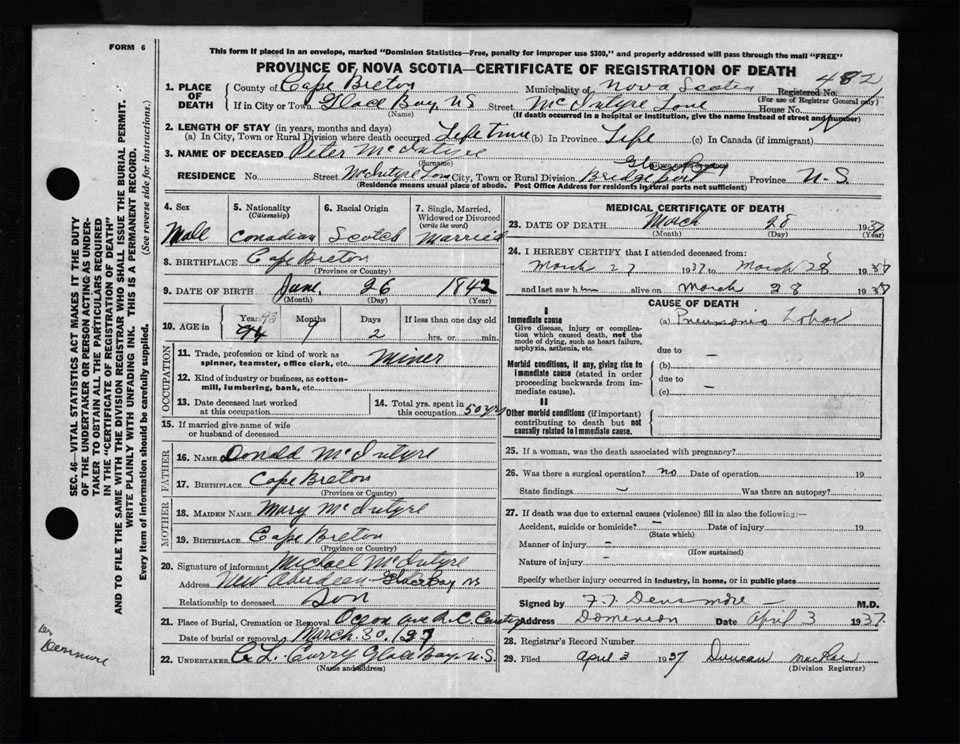 FORM 6
This form if placed in an envelope, marked "Dominion Statistics—Free, penalty for improper use $300," and properly addressed will pass through the mail "FREE"
PROVINCE OF NOVA SCOTIA—CERTIFICATE OF REGISTRATION OF DEATH
482
1. PLACE OF DEATH County of Cape Breton Municipality of Nova Scotia Registered No.
(For use of Registrar General only)
If in City or Town Glace Bay, N S Street McIntyre Lane House No.
(Name) (If death occurred in a hospital or institution, give the name instead of street and number)
2. LENGTH OF STAY (in years, months and days)
(a) In City, Town or Rural Division where death occurred Life time (b) In Province Life (c) In Canada (if immigrant)
3. NAME OF DECEASED Peter McIntyre
(Surname)
Glace Bay
RESIDENCE No. Street McIntyre Lane City, Town or Rural Division Bridgeport Province N-S.
(Residence means usual place of abode. Post Office Address for residents in rural parts not sufficient)
4. Sex Male
5. Nationality (Citizenship) Canadian
6. Racial Origin Scotch
7. Single, Married, Widowed or Divorced (write the word) Married
8. BIRTHPLACE Cape Breton
(Province or Country)
9. DATE OF BIRTH June 26 1842
(Month) (Day) (Year)
10. AGE in Years 93 94 Months 9 Days 2 If less than one day old hrs. or min.
OCCUPATION
11. Trade, profession or kind of work as spinner, teamster, office clerk, etc. Miner
12. Kind of industry or business, as cotton-mill, lumbering, bank, etc.
13. Date deceased last worked at this occupation
14. Total yrs. spent in this occupation 50 yrs
15. If married give name of wife or husband of deceased
FATHER
16. NAME Donald McIntyre
17. BIRTHPLACE Cape Breton
(Province or Country)
MOTHER
18. MAIDEN NAME Mary McIntyre
19. BIRTHPLACE Cape Breton
(Province or Country)
20. Signature of informant Michael McIntyre
Address New Aberdeen Glace Bay NS
Relationship to deceased Son
21. Place of Burial, Cremation or Removal Ocean Ave R.C. Cemetry
Date of burial or removal March 30, 1937
22. UNDERTAKER Curry Glace Bay, N.S.
(Name and Address)
MEDICAL CERTIFICATE OF DEATH
23. DATE OF DEATH March 28 1937
(Month) (Day) (Year)
24. I HEREBY CERTIFY that I attended deceased from:
March 27 1937 to March 28 1937
and last saw him alive on March 28 1937
CAUSE OF DEATH
I
Immediate cause
Give disease, injury or complication which caused death, not the mode of dying, such as heart failure, asphyxia, asthenia, etc.
(a) Pneumonia Lobar
due to –
Morbid conditions, if any, giving rise to immediate cause (stated in order proceeding backwards from immediate cause).
(b)
due to –
(c)
II
Other morbid conditions (if important) contributing to death but not causally related to immediate cause.
25. If a woman, was the death associated with pregnancy?
26. Was there a surgical operation? no Date of operation 19
State findings – Was there an autopsy?
27. If death was due to external causes (violence) fill in also the following:—
Accident, suicide or homicide? – Date of injury 19
(State which)
Manner of injury –
(How sustained)
Nature of injury –
Specify whether injury occurred in industry, in home, or in public place
Signed by Densmore M.D.
Address Dominion Date April 3 1937
28. Registrar's Record Number
29. Filed April 3 1937 Duncan MacRae
(Division Registrar)
SEC. 46—VITAL STATISTICS ACT MAKES IT THE DUTY OF THE UNDERTAKER OR PERSON ACTING AS UNDERTAKER TO OBTAIN ALL THE PARTICULARS REQUIRED IN THE "CERTIFICATE OF REGISTRATION OF DEATH" AND TO FILE THE SAME WITH THE DIVISION REGISTRAR WHO SHALL ISSUE THE BURIAL PERMIT.
WRITE PLAINLY WITH UNFADING INK. THIS IS A PERMANENT RECORD.
Every item of information should be carefully supplied. (See reverse side for instructions.)
Densmore